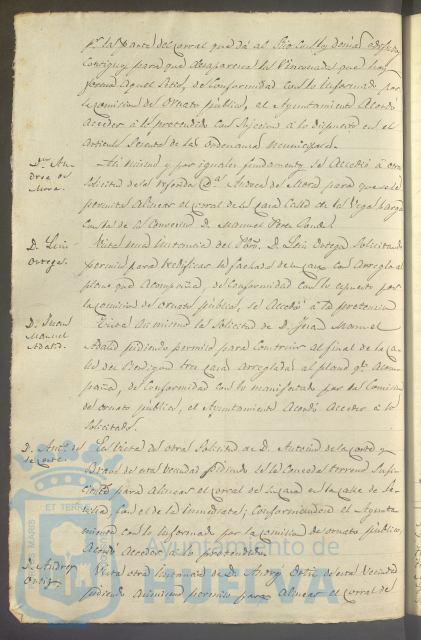 pr. la parte del corral que dá al Sitio Cuesta y demas edificios
Contiguos y para que desaparezca los Rinconadas que hoy
forma aquel Sitio, de Conformidad con lo informado por
la Comision de Ornato público, el Ayuntamiento Acordó
Acceder á lo pretendido con Sujecion á lo dispuesto en el
Articulo de la Ordenanza Municipales.
Da. An-
drea de
Mora.
Asi mismo y por iguales fundamentos se Accedió á otra
Solicitud de la referida Da. Andrea de Mora para que se le
permita Alinear el corral de la Casa Calle de la Vega Larga
D. Manuel Perez
D. Luis
Ortega.
Vista una instancia del D. Luis Ortega Solicitando
permiso para reedificar la fachada de su Casa con Arreglo al
plano que Acompaña, de Conformidad con lo espuesto por
la Comision de Ornato público, se Accedió á la pretencion
D. Juan
Manuel
Adalid.
Vista Asimismo la Solicitud de D. Juan Manuel
Adalid pidiendo permiso para Construir al final de la Ca-
lle del tres Casas Arregladas al plano qe. Acom-
paña, de Conformidad con lo manifestado por la Comision
de Ornato público, el Ayuntamiento Acordó Acceder á lo
Solicitado.
D. Anto. de
la Corte.
En Vista de otra Solicitud de D. Antonio de la Corte y
Bravo de esta Vecindad pidiendo se le Conceda terreno Sufi-
ciente para Alinear el corral de su Casa en la Calle de Se-
villa con el de la inmediata; Conformandose el Ayunta-
miento con lo informado por la Comision de Ornato público
Acordó Acceder á lo pretendido.
D. Andres
Ortiz
Vista otra instancia de D. Andrés Ortiz de esta Vecindad
pidiendo Asimismo permiso para Alinear el corral de
ET TERRÆ
Ayuntamiento de
HUELVA